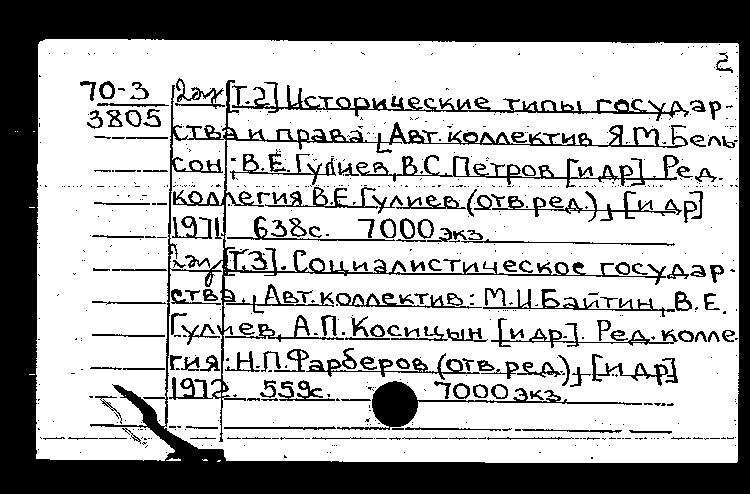 2
70-3 2 экз [Т.2] Исторические типы государ-
3805 ства и права. Авт. коллектив Я.М.Бель-
сон; В.Е.Гулиев, В.С.Петров [и др]. Ред.
коллегия В.Е.Гулиев (отв.ред.), [и др]
1971 638с. 7000 экз.
2 экз [Т.3]. Социалистическое государ-
ства. Авт. коллектив: М.И.Байтин, В.Е.
Гулиев, А.П.Косицын [и др.]. Ред.колле
гия: Н.П.Фарберов (отв.ред.), [и др]
1972. 559с. 7000 экз.